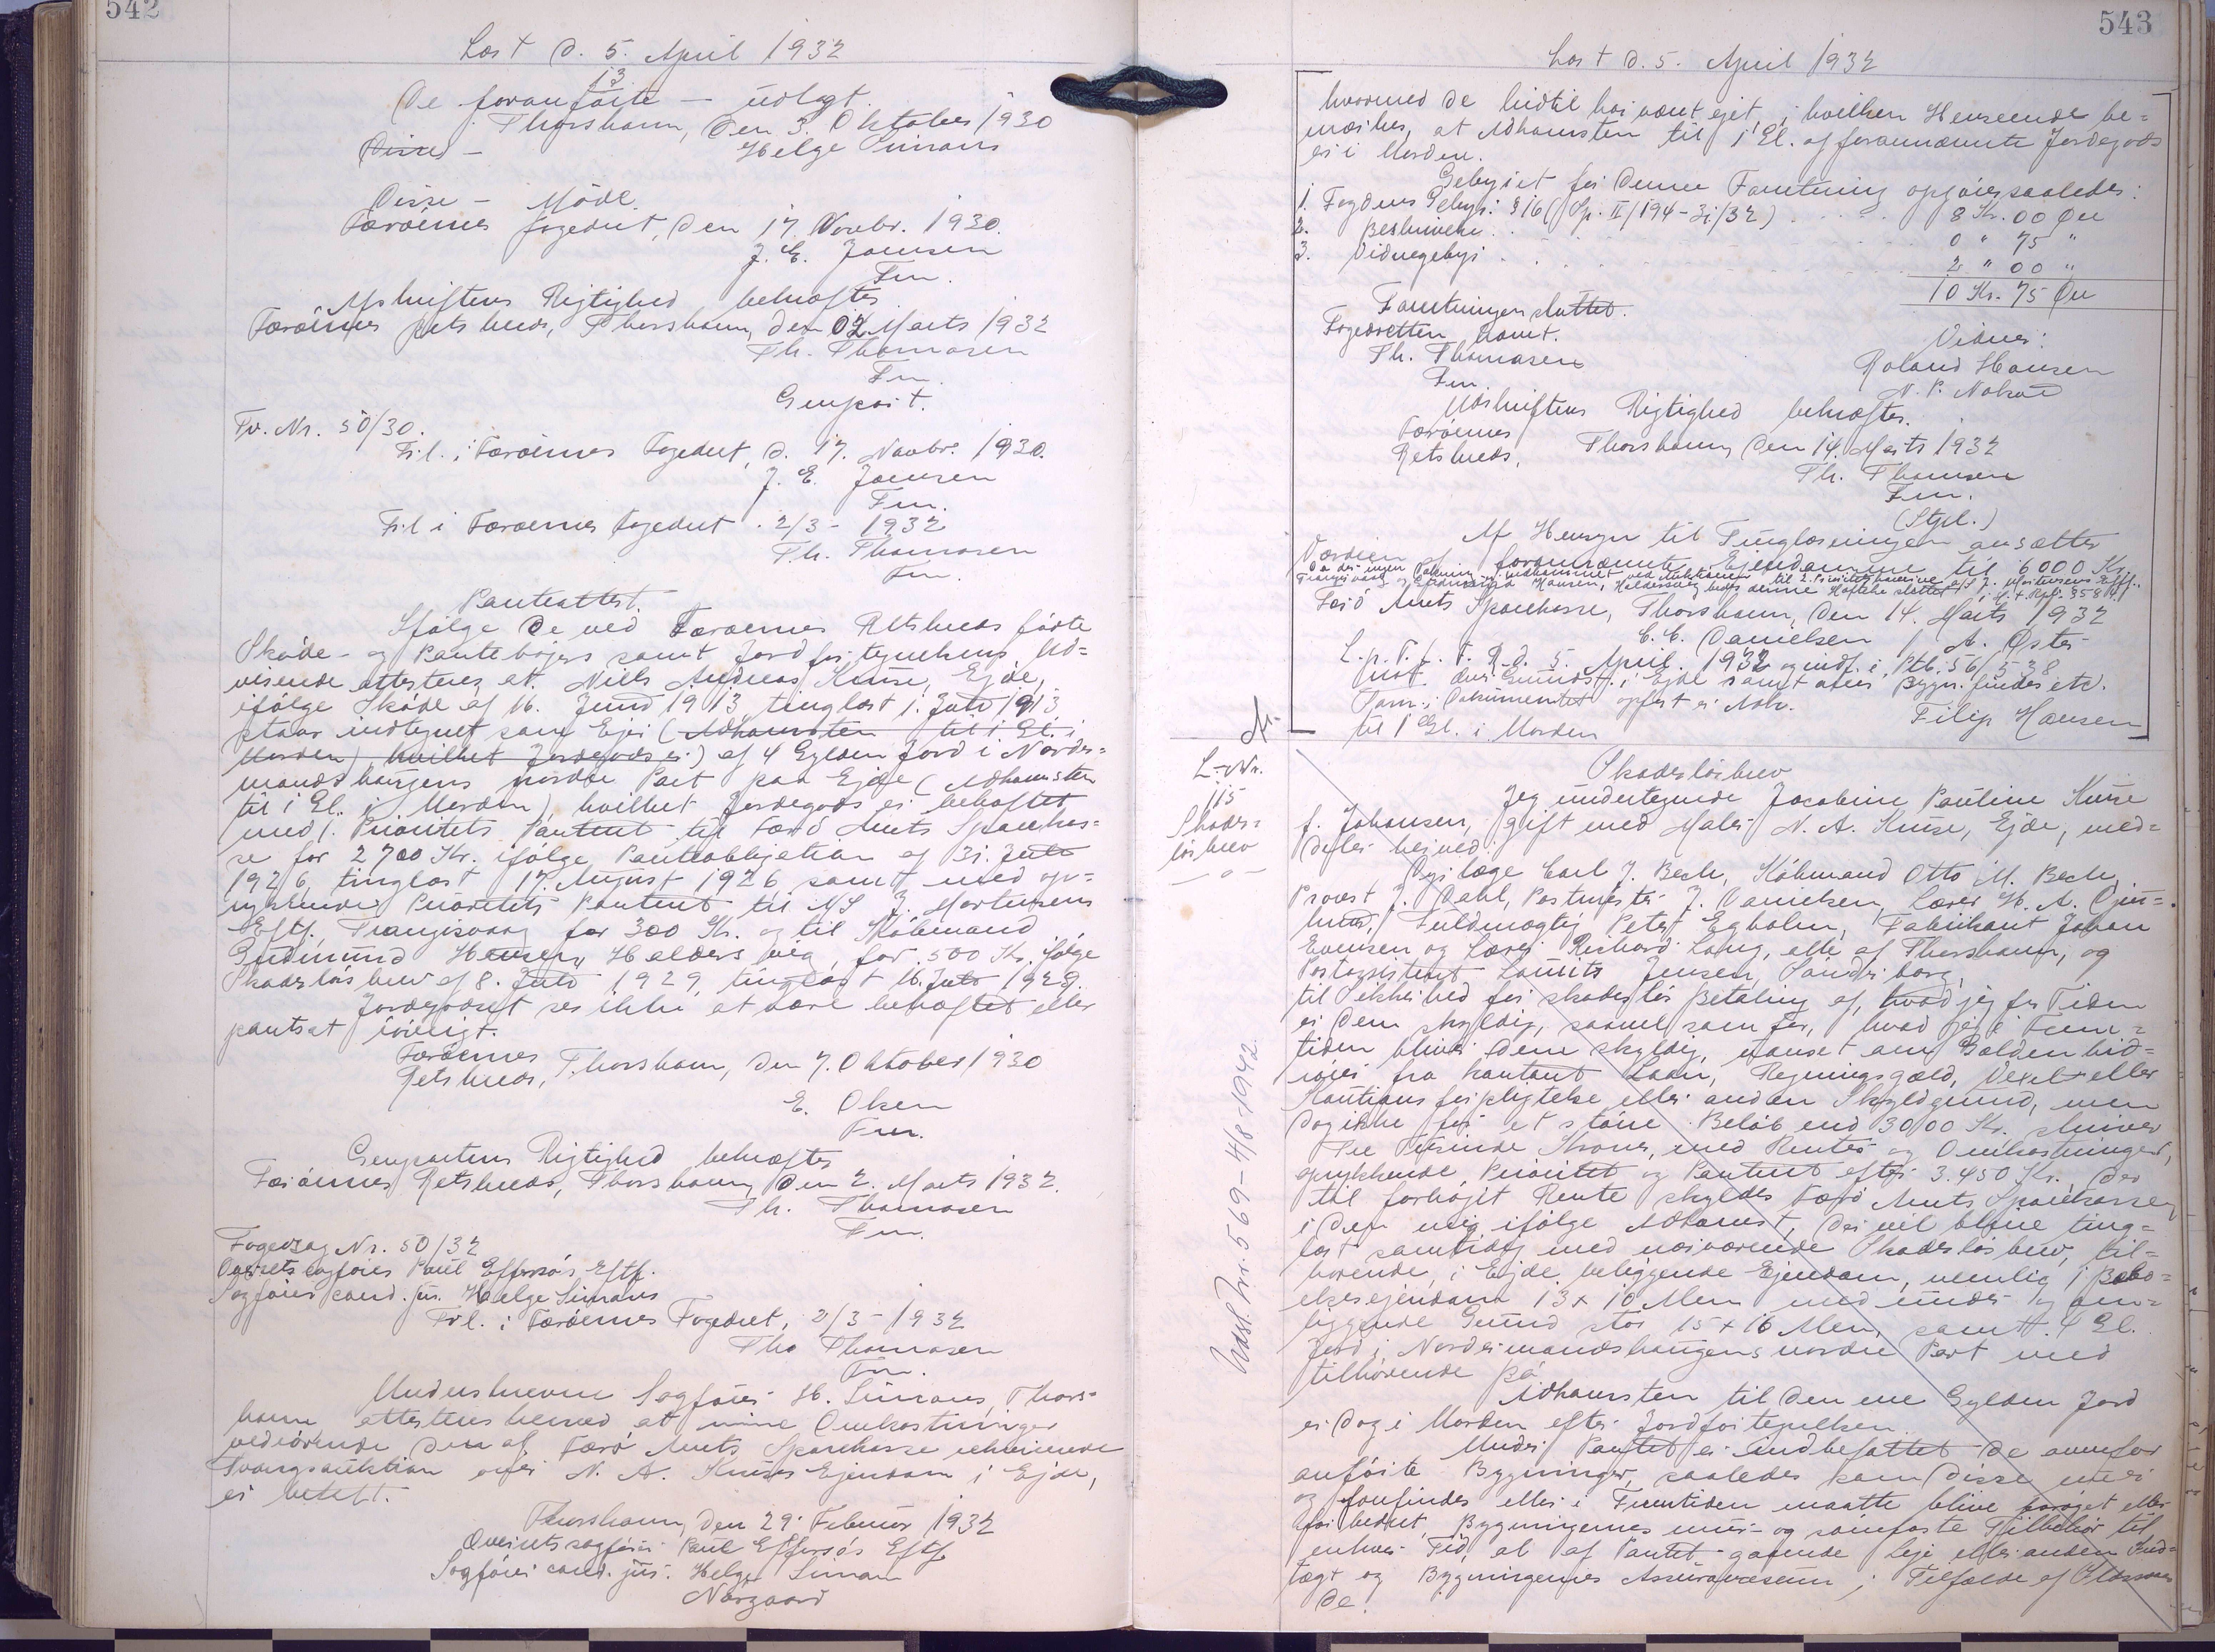 542
Læst d. 5. April 1932
13
De foranførte — udlagt.
Thorshavn, den 3. Oktober 1930
Disse — Helge Simans
Disse — Møde.
Færøernes Fogedret, den 17. Novbr. 1930.
J. E. Jansen
Fm.
Afskriftens Rigtighed bekræftes
Færøernes Retskreds, Thorshavn, den 02 Marts 1932
Th. Thomasen
Fm.
Genpart.
Fv. Nr. 50/30.
Fr.l. i Færøernes Fogedret, d. 17. Novbr. 1930.
J. E. Jansen
Fm.
Fr.l i Færøernes Fogedret. 2/3 - 1932
Th. Thomasen
Fm.
Panteattest.
Ifølge de ved Færøernes Retskreds førte
Skøde- og Pantebøger samt Jordfortegnelsens Ud=
visende attesteres at Niels Andreas Kruse, Ejde,
ifølge Skøde af 16. Juni 1913, tinglæst 1. Juli 1913
staar indtegnet som Ejer (Adkomsten til 1 Gl. i
Morden) hvilket Jordegods er) af 4 Gylden Jord i Norder=
mandshaugens nordre Part paa Ejde (Adkomsten
til 1 Gl. i Morden) hvilket Jordegods er behæftet
med 1. Prioritets Panteret til Færø Amts Sparekas=
se for 2700 Kr. ifølge Panteobligation af 31. Juli
1926, tinglæst 17. August 1926 samt med op=
rykkende Prioritets Panteret til A/S J. Mortensens
Eftf., Trangisvaag for 300 Kr. og til Købmand
Gudmund Hansen, Haldersvig, for 500 Kr. ifølge
Skadesløsbrev af 8. Juli 1929, tinglæst 16. Juli 1929.
Jordegodset ses ikke at være behæftet eller
pantsat iøvrigt.
Færøernes
Retskreds, Thorshavn, den 7. Oktober 1930
E. Olsen
Fm.
Genpartens Rigtighed bekræftes
Færøernes Retskreds, Thorshavn, den 2. Marts 1932.
Th. Thomasen
Fm.
Fogedsag Nr. 50/32
Overretssagfører Paul Effersøs Eftf.
Sagfører cand. jur. Helge Simans
Frl. i Færøernes Fogedret, 2/3 - 1932
Tho Thomasen
Fm.
Underskrevne Sagfører H. Simans, Thors=
havn attesteres herved, at mine Omkostninger
vedrørende den af Færø Amts Sparekasse rekvirerede
Tvangsauktion over N. A. Kruses Ejendom i Ejde,
er betalt.
Thorshavn, den 29. Februar 1932
Overretssagfører Paul Effersøs Eftf.
Sagfører cand. jur. Helge Simans
Nørgaard
543
Læst d. 5. April 1932
hvormed de hidtil har været ejet, i hvilken Henseende be=
mærkes, at Adkomsten til 1 Gl. af forannævnte Jordegods
er i Morden.
Gebyret for denne Forretning opgøres saaledes:
1. Fogdens Gebyr: § 16 (Sp. II/194-31/32) . . . 8 Kr. 00 Øre
2. Beskrivelse . . . 0 " 75 "
3. Vidnegebyr . . . 2 " 00 "
10 Kr. 75 Øre
Forretningen sluttet.
Fogedretten hævet.
Th. Thomasen
Fm.
Vidner:
Roland Hansen
N. P. Nolsøe
Udskriftens Rigtighed bekræftes.
Færøernes
Retskreds, Thorshavn, den 14. Marts 1932
Th. Thomasen
Fm.
(Stpl.)
Af Hensyn til Tinglæsningen ansættes
Værdien af forannævnte Ejendomme til 6000 Kr.
Da der ingen Dækning er indkommet ved Auktionen til 2. Prioritetshaverne A/S J. Mortensens Eftf.,
Trangisvaag og Gudmund Hansen, Haldersvig bedes denne Hæftelse slettet i H. t. Rpl. § 581
Færø Amts Sparekasse, Thorshavn, den 14. Marts 1932
C. C. Danielsen / A. Øster
L. p. T. f. F. R. d. 5. April. 1932 og indf. i Ptb. 56/538
Not. den Grundst. i Ejde samt afvs Bygn. findes etc.
Som i Dokumentet opført er Adk.
til 1 Gl. i Morden Filip Hansen
L.-Nr.
115
Skades=
løsbrev
Udsl. Nr. 569 - 4/8 - 1942
Skadesløsbrev
Jeg undertegnede Jacobine Pauline Kruse
f. Johansen, gift med Maler N. A. Kruse, Ejde, med=
deler herved:
Dyrlæge Carl J. Bech, Købmand Otto M. Bech,
Provst J. Dahl, Postmester J. Danielsen, Lærer H. A. Djur=
huus, Fuldmægtig Peter Egholm, Fabrikant Johan
Evensen og Lærer Rechard Long, alle af Thorshavn, og
Postassistent Laurits Jensen, Sønderborg,
til Sikkerhed for skadesløs Betaling af, hvad jeg for Tiden
er dem skyldig, saavel som for, hvad jeg i Frem=
tiden bliver dem skyldig, uanset om Gælden hid=
rører fra kontant Laan, Regningsgæld, Vexel- eller
Kautionsforpligtelse eller anden Skyldgrund, men
dog ikke for et større Beløb end 3000 Kr. skriver
Tre Tusinde Kroner, med Renter og Omkostninger,
oprykkende Prioritet og Panteret efter 3.450 Kr., der
til forhøjet Rente skyldes Færø Amts Sparekasse
i den mig ifølge Adkomst, der vil blive ting=
læst samtidig med nærværende Skadesløsbrev, til=
hørende, i Ejde beliggende Ejendom, nemlig 1 Bebo=
elsesejendom 13 x 10 Alen med under- og om=
liggende Grund stor 15 x 16 Alen, samt 4 Gl.
Jord i Nordermandshaugens nordre Part med
tilhørende på.
Adkomsten til den ene Gylden Jord
er dog i Morden efter Jordfortegnelsen.
Under Pantet er indbefattet de ovenfor
anførte Bygninger, saaledes som disse nu er
og forefindes eller i Fremtiden maatte blive forøget eller
forbedret, Bygningernes mur- og sømfaste Tilbehør til
enhver Tid, al af Pantet gaaende Leje eller anden Ind=
tægt og Bygningernes Assurancesum i Tilfælde af Ildssvaade.